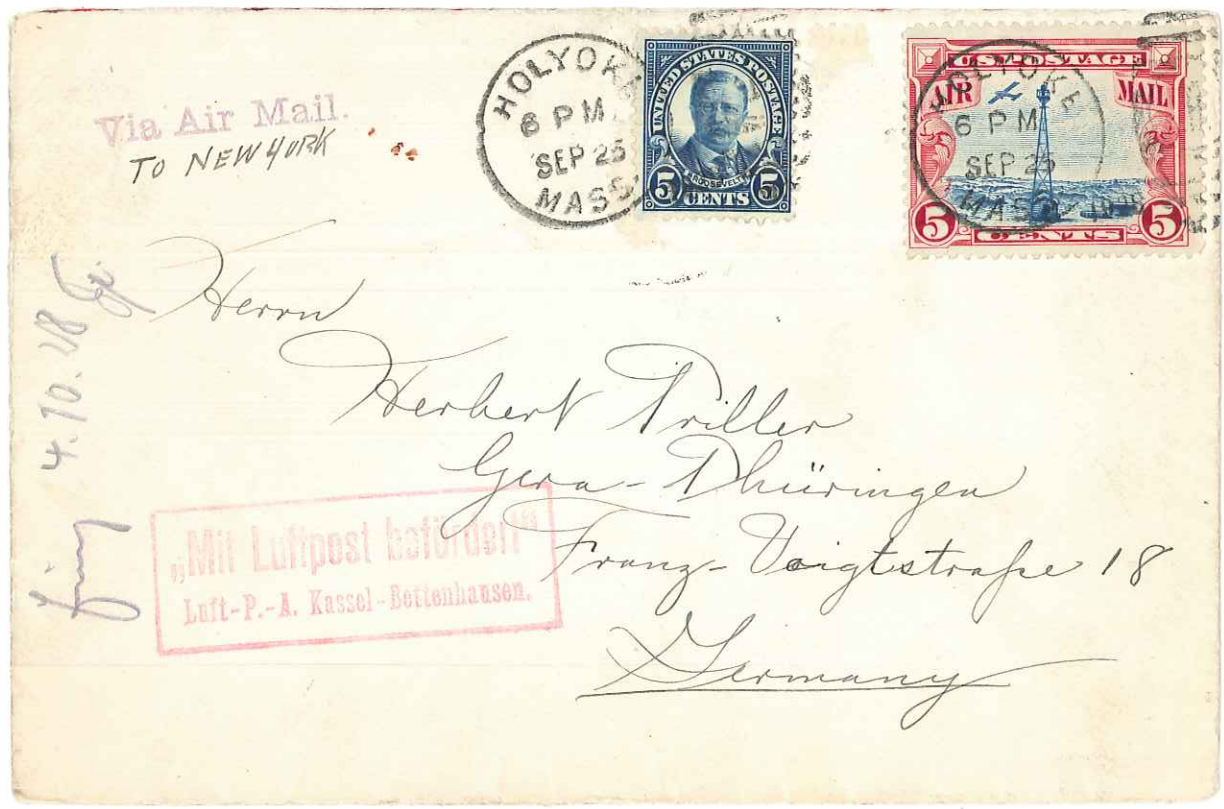 Via Air Mail.
TO NEW YORK
HOLYOKE
6 PM
SEP 25
MASS.
UNITED STATES POSTAGE
ROOSEVELT
5 CENTS 5
U.S. POSTAGE
AIR MAIL
HOLYOKE
6 PM
SEP 25
MASS.
5 CENTS 5
Herrn
Herbert Priller
Gera-Thüringen
Franz-Voigtstraße 18
Germany
4.10.28
„Mit Luftpost befördert"
Luft-P.-A. Kassel-Bettenhausen.